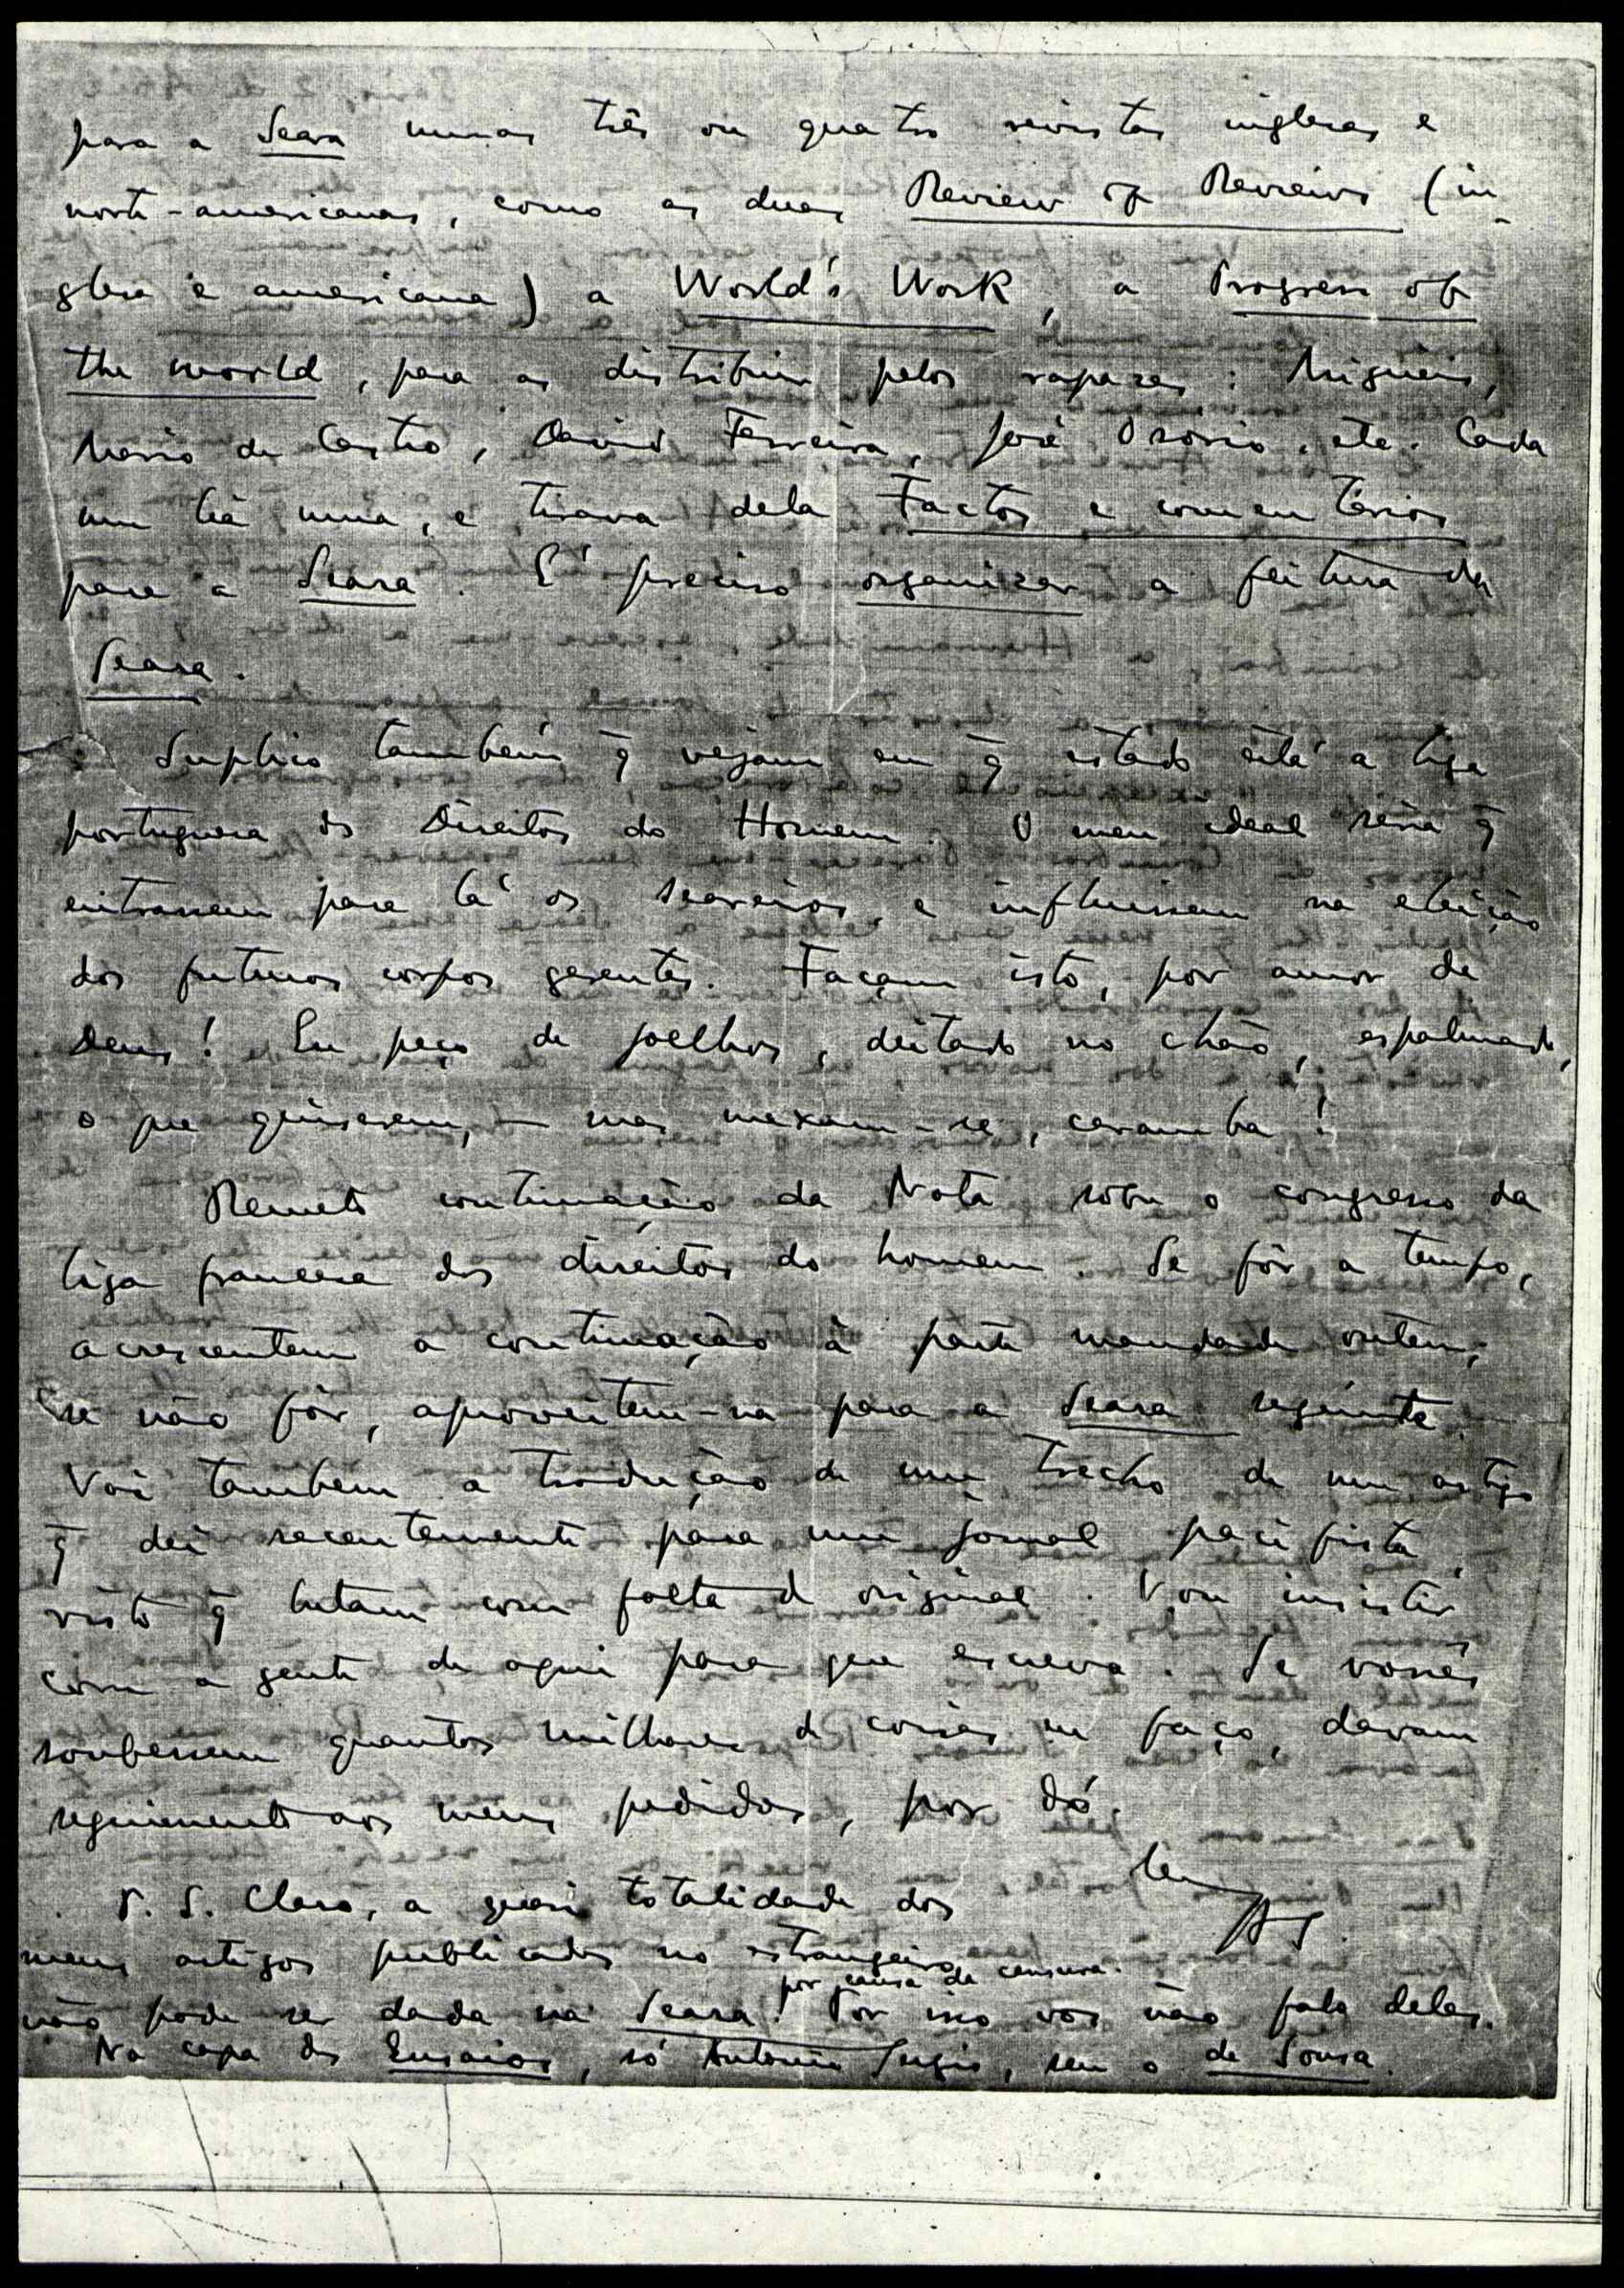 para a Seara umas três ou quatro revistas inglesas e
norte-americanas, como as duas Review of Reviews (in-
glesa e americana) a World's Work, a Progress of
the world, para as distribuir pelos rapazes: Migueis,
Mario de Castro, David Ferreira, José Osório, etc. Cada
um lia uma, e tirava dela Factos e comentários
para a Seara. É preciso organizar a feitura da
Seara.
Suplico também q̄ vejam em q̄ estado está a liga
portuguesa dos Direitos do Homem. O meu ideal seria q̄
entrassem para lá os seareiros, e influissem na eleição
dos futuros corpos gerentes. Façam isto, por amor de
Deus! Eu peço de joelhos, deitado no chão, espalmado,
o que quiserem, — mas mexam-se, caramba!
Remeto continuação da Nota sobre o congresso da
liga francesa dos direitos do homem. Se fôr a tempo,
acrescentem a continuação à parte mandada ontem;
se não fôr, aproveitem-na para a Seara seguinte.
Vai tambem a tradução de um trecho de um artigo
q̄ dei recentemente para um jornal pacifista,
visto q̄ lutam com falta d original. Vou insistir
com a gente de aqui para que escreva. Se vossês
soubessem quantos milhares d coisas eu faço, davam
seguimento aos meus pedidos, por dó.
AS.
P. S. Claro, a quasi totalidade dos
meus artigos publicados no estrangeiro
não pode ser dada na Seara por causa da censura. Por isso vos não falo deles.
Na capa dos Ensaios, só Antonio Sergio, sem o de Sousa.